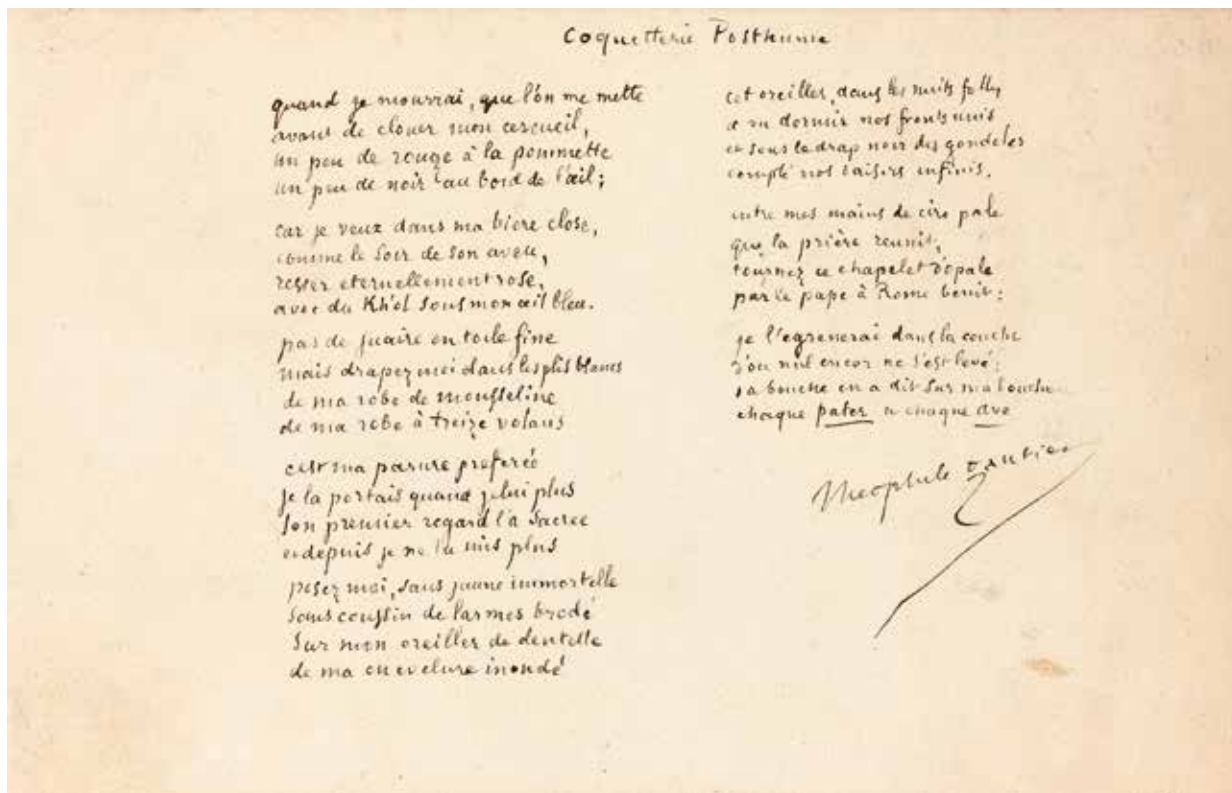 Coquetterie Posthume
quand je mourrai, que l'on me mette
avant de clouer mon cercueil,
un peu de rouge à la pommette
un peu de noir au bord de l'œil;
car je veux dans ma biere close,
comme le soir de son aveu,
rester eternellement rose,
avec du Kh'ol sous mon œil bleu.
pas de suaire en toile fine
mais drapez moi dans les plis blancs
de ma robe de mousseline
de ma robe à treize volans
c'est ma parure preferée
je la portais quand je lui plus
son premier regard l'a sacree
et depuis je ne la mis plus
posez moi, sans jaune immortelle
sans coussin de larmes brodé
sur mon oreiller de dentelle
de ma chevelure inondé
cet oreiller, dans les nuits folles
a vu dormir nos fronts unis
et sous le drap noir des gondoles
compté nos baisers infinis.
entre mes mains de cire pale
que la prière reunit,
tournez ce chapelet d'opale
par le pape à Rome benit:
je l'egrenerai dans la couche
d'ou nul encor ne s'est levé;
sa bouche en a dit sur ma bouche
chaque pater et chaque ave
Theophile Gautier